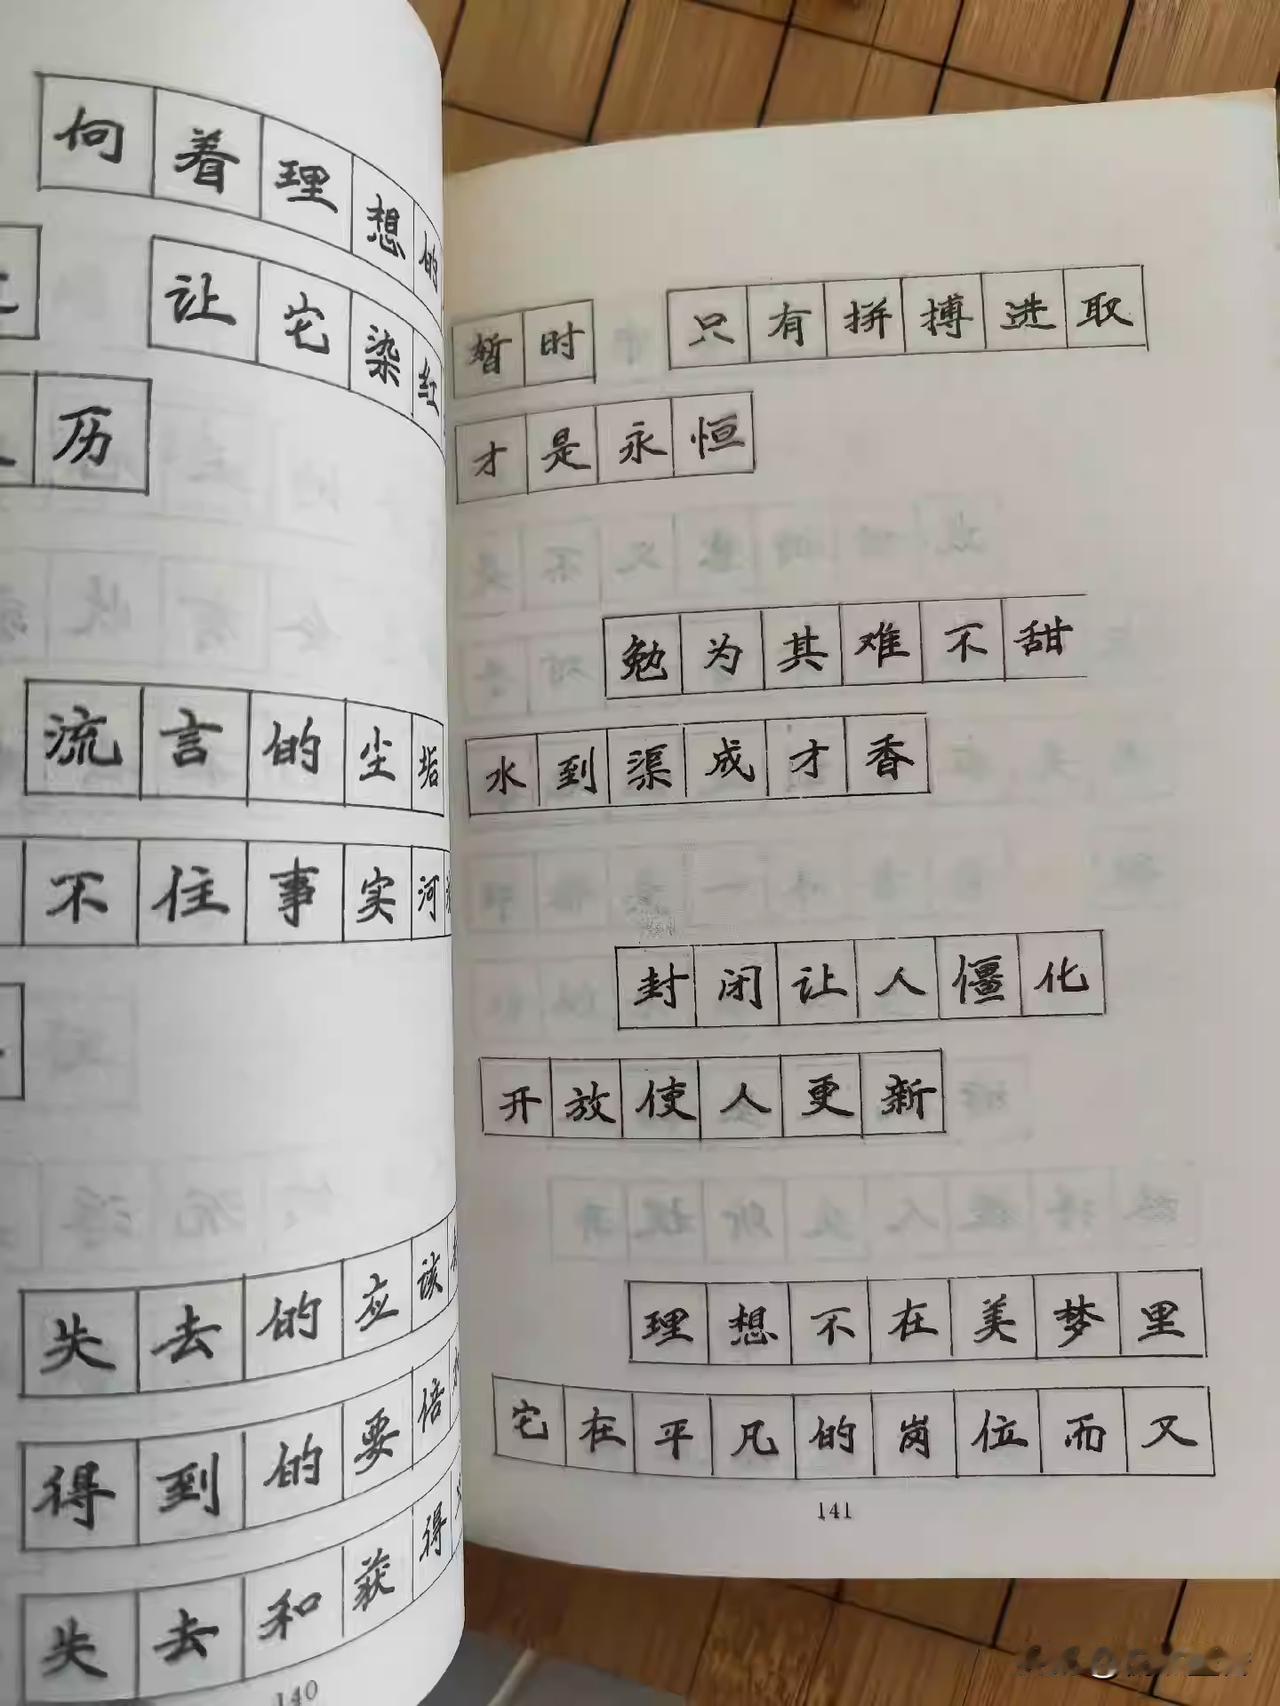 向着理想的
让它染红
历
流言的尘垢
不住事实河
失去的应该
得到的要倍
失去和获得
140
暂时 只有拼搏进取
才是永恒
勉为其难不甜
水到渠成才香
封闭让人僵化
开放使人更新
理想不在美梦里
它在平凡的岗位而又
141